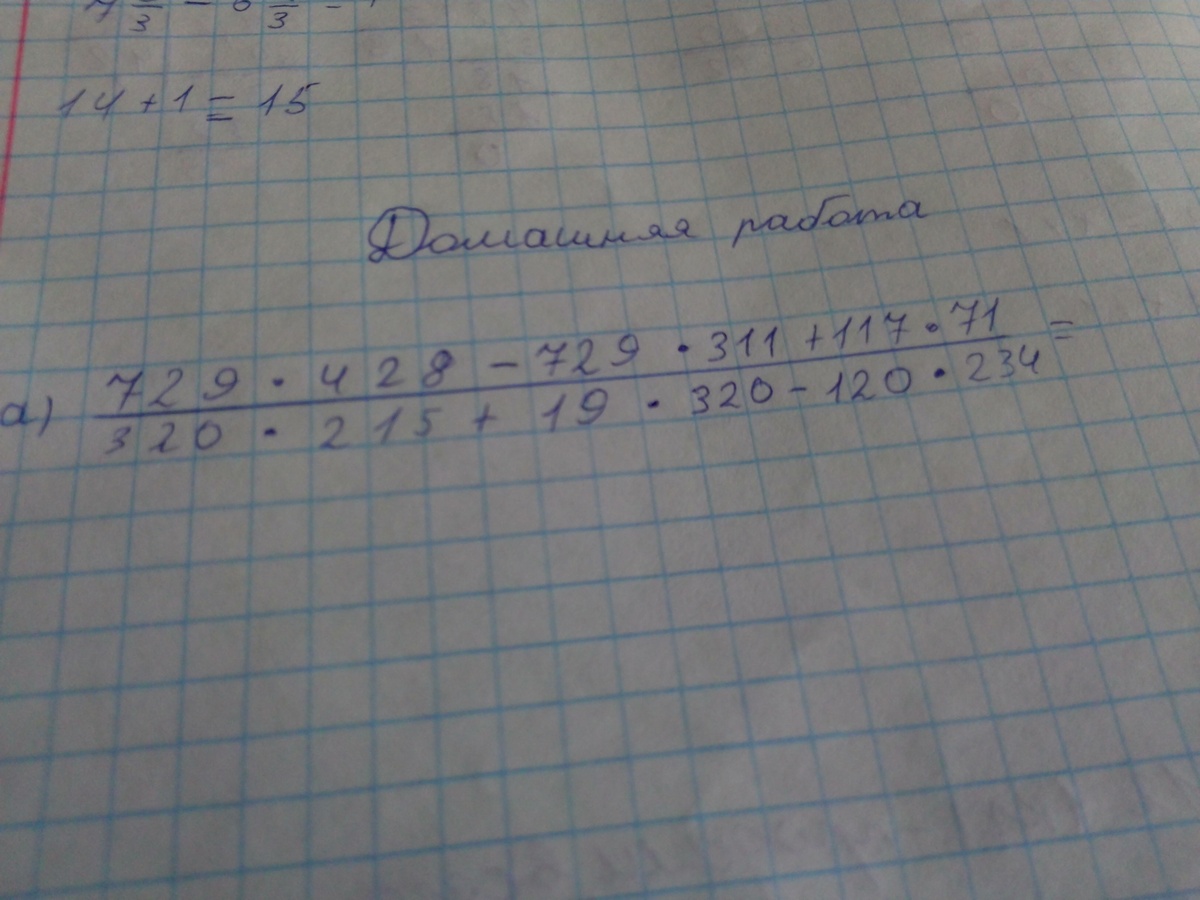 14 + 1 = 15
Домашняя работа
а) 729 · 428 - 729 · 311 + 117 · 71 =
320 · 215 + 19 · 320 - 120 · 234